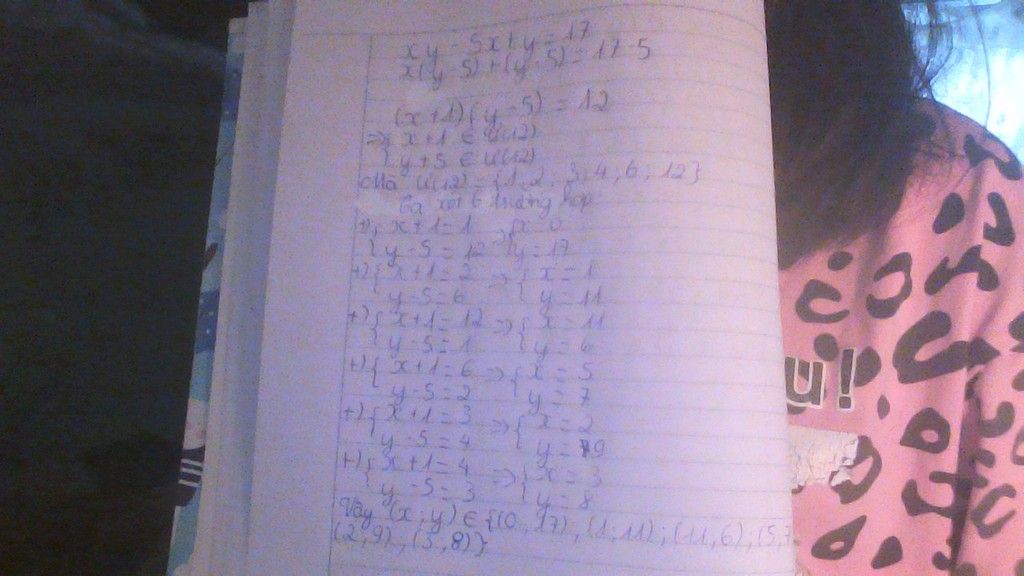 xy - 5x + y = 17
x(y-5) + (y-5) = 17-5
(x+1)(y-5) = 12
=> { x+1 ∈ Ư(12)
{ y+5 ∈ Ư(12)
Mà Ư(12) = {1, 2, 3; 4; 6; 12}
Ta xét 6 trường hợp
+) { x+1=1 => { x=0
{ y-5=12 { y=17
+) { x+1=2 => { x=1
y-5=6 { y=11
+) { x+1=12 => { x=11
{ y-5=1 { y=6
+) { x+1=6 => { x=5
y-5=2 { y=7
+) { x+1=3 => { x=2
y-5=4 { y=9
+) { x+1=4 => { x=3
{ y-5=3 { y=8
Vậy (x;y) ∈ {(0, 17), (1; 11); (11, 6); (5,7
(2,9), (3,8)}
u!